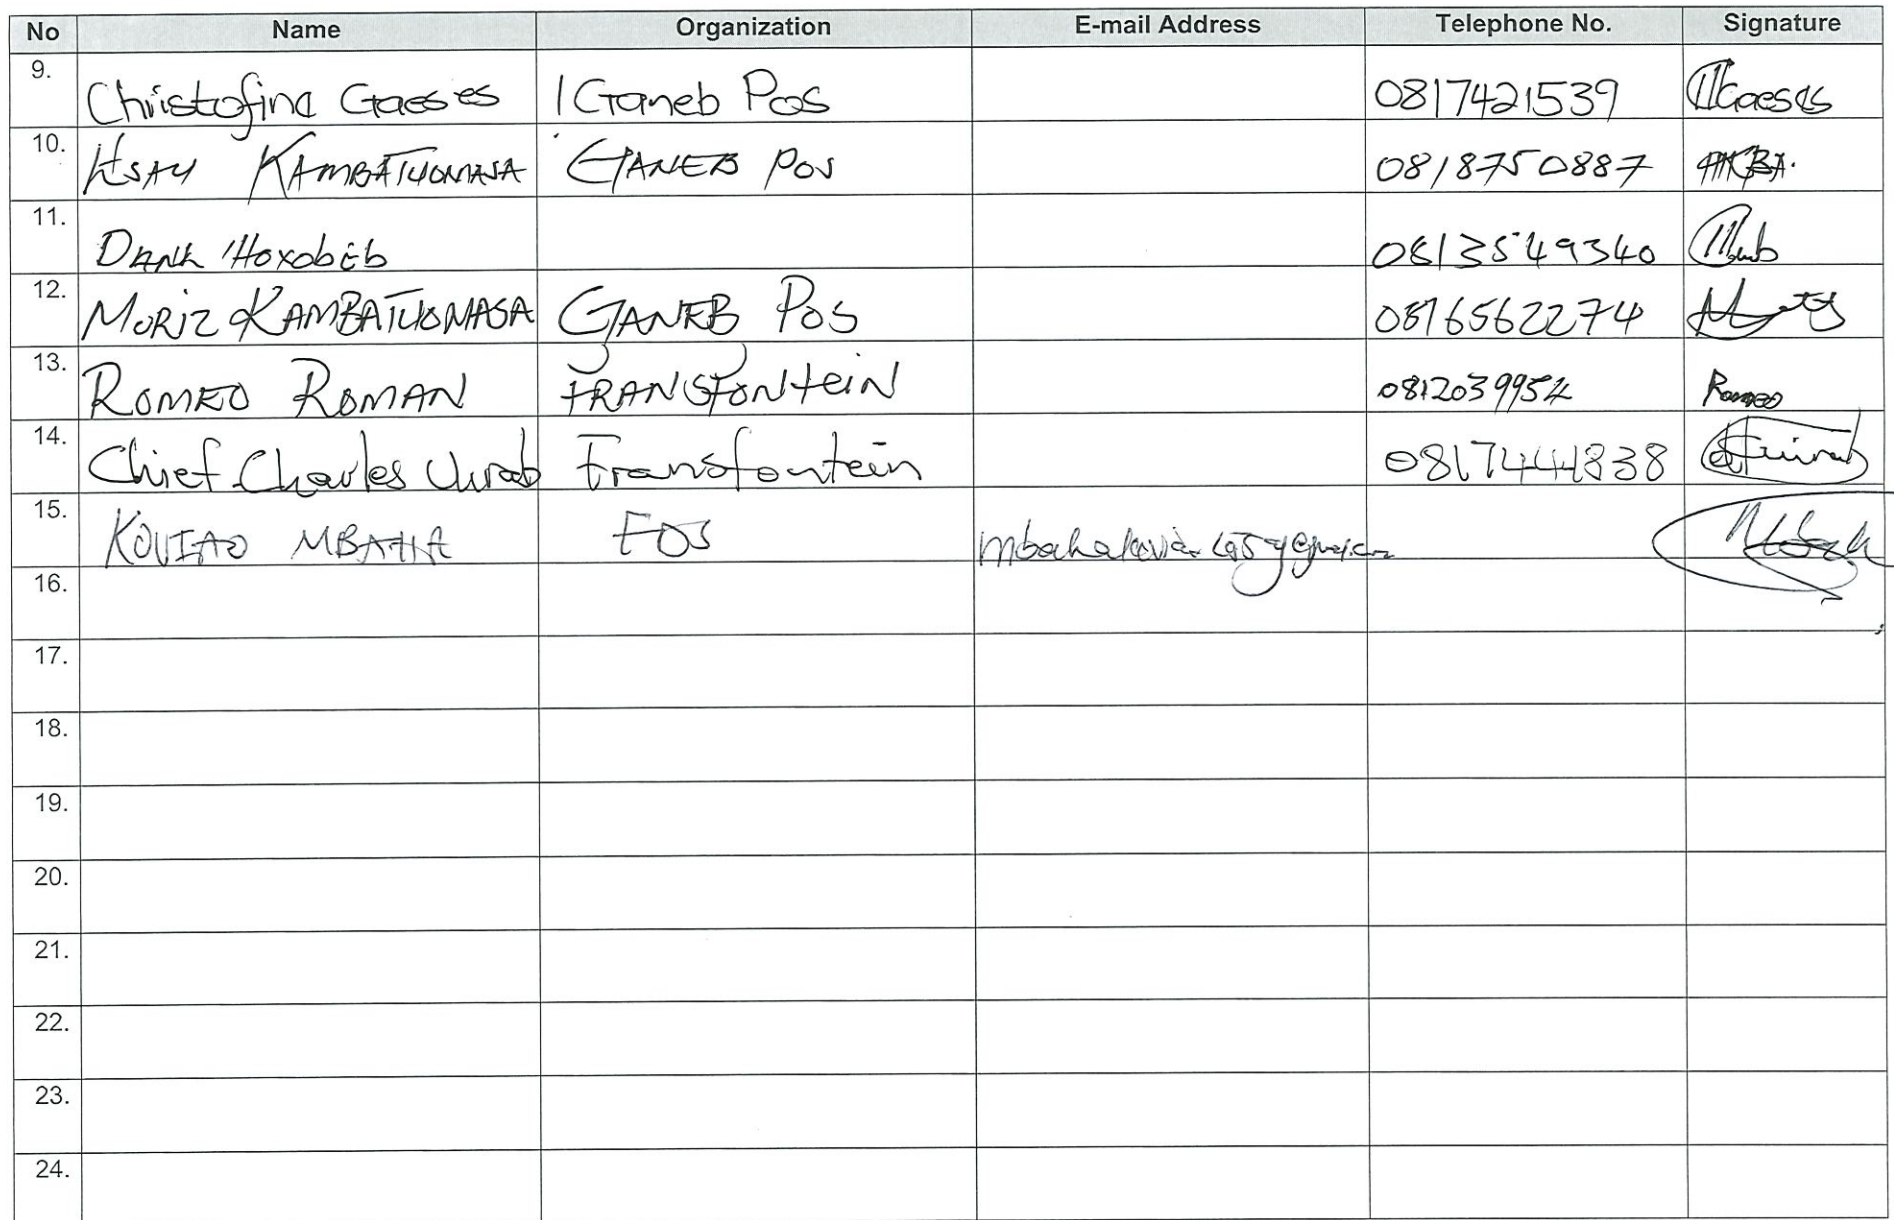 No Name Organization E-mail Address Telephone No. Signature
9. Christofina Gaeses |Ganeb Pos 0817421539
10. Esau KAMBATUOMASA GANEB POS 0818750887
11. Dank ǁHoxobeb 0813549340
12. MORIZ KAMBATUOMASA GANEB POS 0816562274
13. ROMEO ROMAN FRANSFONTEIN 0812039954 Romeo
14. Chief Charles Uirab Fransfontein 0817444838
15. MBAHA
16.
17.
18.
19.
20.
21.
22.
23.
24.